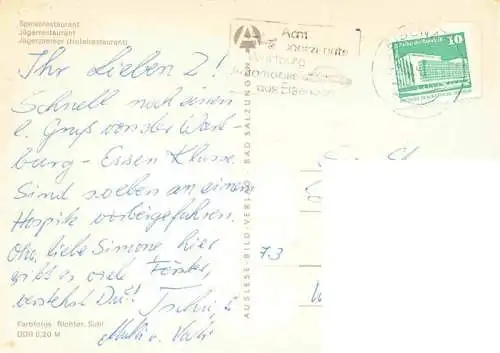 Speiserestaurant
Jägerrestaurant
Jägerzimmer (Hotelrestaurant)
Ihr Lieben 2!
Schnell noch einen
l. Gruß von der Wart-
burg - Essen Klasse.
Sind soeben an einem
Hospitz vorbeigefahren.
Oh, liebe Simone hier
gibt es viele Förster,
verstehst Du!
Mutti u. Vati
Farbfotos Richter, Suhl
DDR 0,20 M
AUSLESE-BILD-VERLAG · BAD SALZUNGEN
Wartburg
Automobile
aus Eisenach
10
73